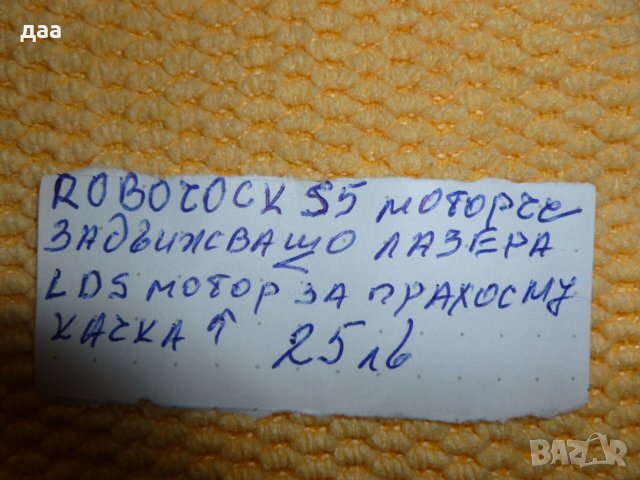 даа
ROBOЧOCK S5 МОТОРЧЕ
ЗАДВИЖВАЩО ЛАЗЕРА
LDS МОТОР ЗА ПРАХОСМУ
КАЧКА ↑ 25 лв
BAZAR